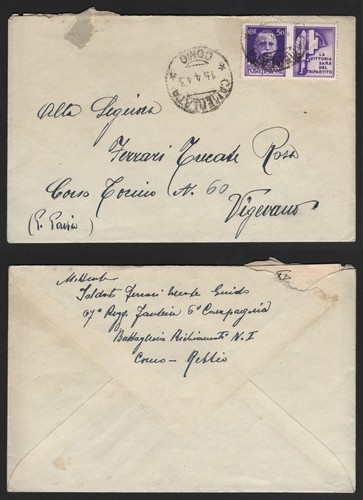 CAMERLATA
* COMO *
15.4.43
50
POSTE ITALIANE
LA
VITTORIA
SARÀ DEL
TRIPARTITO
Alla Signora
Ferrari Trecate Rosa
Corso Torino N. 60
Vigevano
(P. Pavia)
Mittente
Soldato Ferrari Trecate Guido
67° Regg. Fanteria 6ª Compagnia
Battaglione N. I
Como - Rebbio